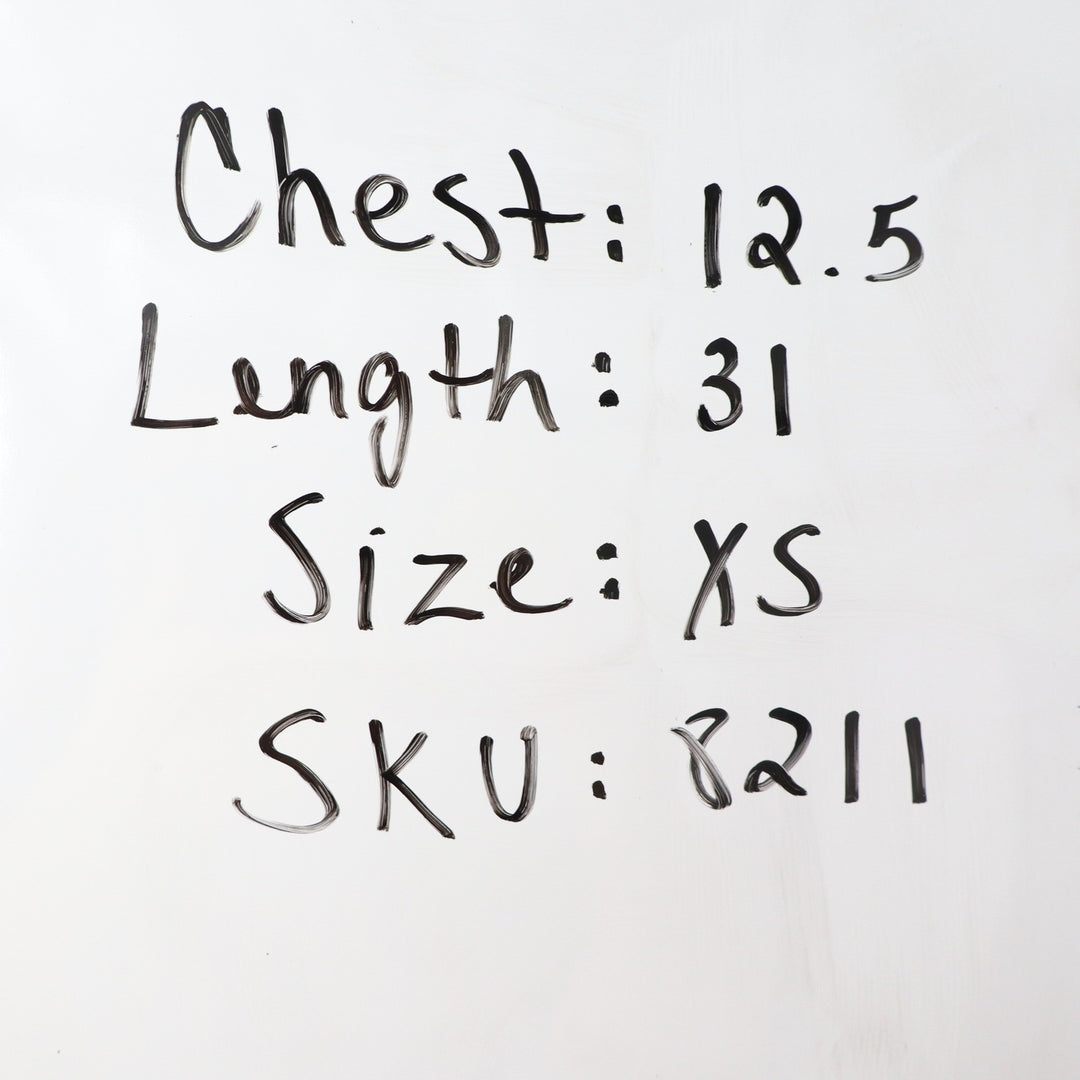 Chest: 12.5
Length: 31
Size: XS
SKU: 8211